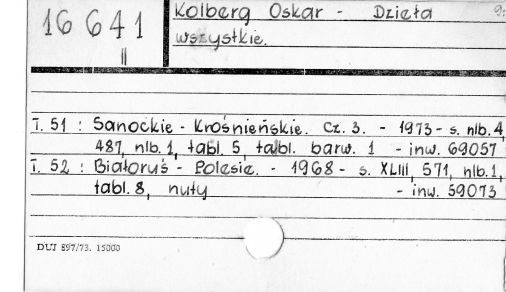 16641
II
Kolberg Oskar - Dzieła
wszystkie.
T. 51 : Sanockie - Krośnieńskie. Cz. 3. - 1973 - s. nlb. 4,
487, nlb. 1, tabl. 5, tabl. barw. 1 - inw. 69057
T. 52 : Białoruś - Polesie. - 1968 - s. XLIII, 571, nlb. 1,
tabl. 8, nuty - inw. 59073
DUJ 897/73. 15000